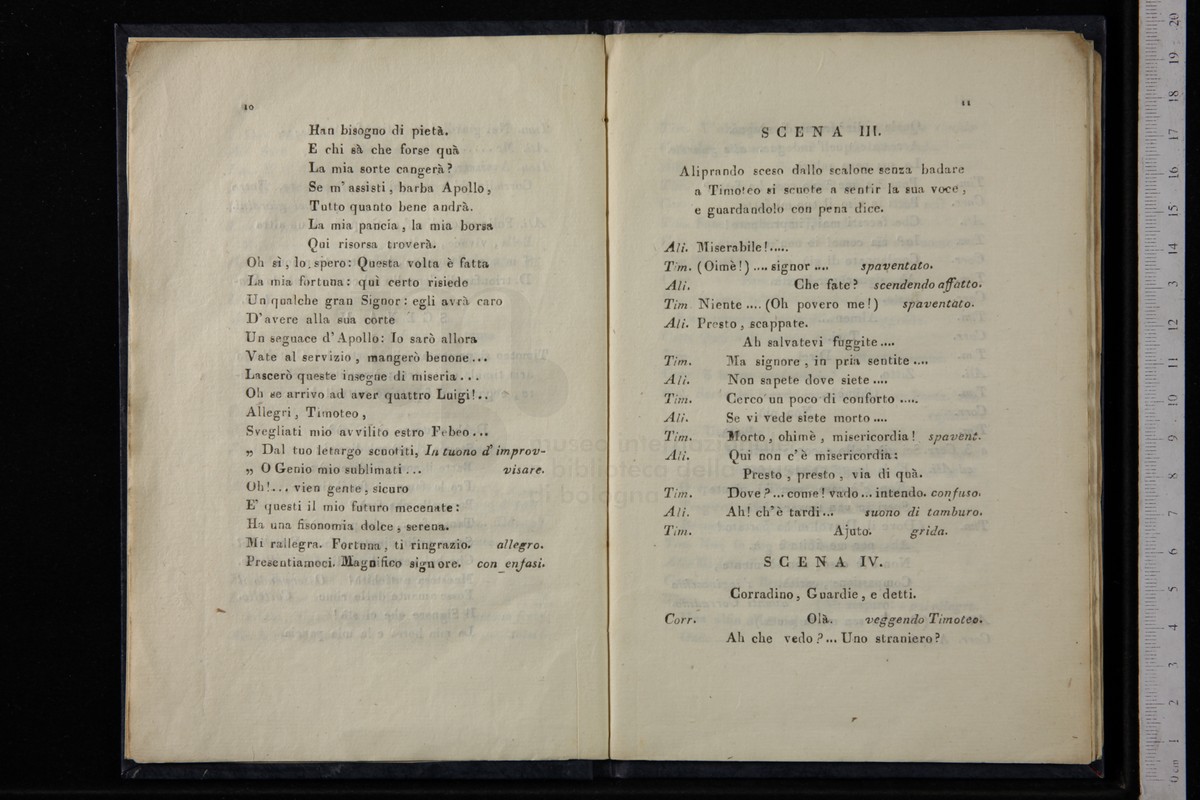 10
Han bisogno di pietà.
E chi sà che forse quà
La mia sorte cangerà?
Se m' assisti, barba Apollo,
Tutto quanto bene andrà.
La mia pancia, la mia borsa
Qui risorsa troverà.
Oh sì, lo spero: Questa volta è fatta
La mia fortuna: quì certo risiede
Un qualche gran Signor: egli avrà caro
D'avere alla sua corte
Un seguace d'Apollo: Io sarò allora
Vate al servizio, mangerò benone...
Lascerò queste insegne di miseria...
Oh se arrivo ad aver quattro Luigi!..
Allegri, Timoteo,
Svegliati mio avvilito estro Febeo...
„ Dal tuo letargo scuotiti, In tuono d' improv-
„ O Genio mio sublimati... visare.
Oh!... vien gente, sicuro
E' questi il mio futuro mecenate:
Ha una fisonomia dolce, serena.
Mi rallegra. Fortuna, ti ringrazio. allegro.
Presentiamoci. Magnifico signore. con enfasi.
11
SCENA III.
Aliprando sceso dallo scalone senza badare
a Timoteo si scuote a sentir la sua voce,
e guardandolo con pena dice.
Ali. Miserabile!.....
Tim. (Oimè!).... signor.... spaventato.
Ali. Che fate? scendendo affatto.
Tim Niente.... (Oh povero me!) spaventato.
Ali. Presto, scappate.
Ah salvatevi fuggite....
Tim. Ma signore, in pria sentite....
Ali. Non sapete dove siete....
Tim. Cerco un poco di conforto.....
Ali. Se vi vede siete morto....
Tim. Morto, ohimè, misericordia! spavent.
Ali. Qui non c'è misericordia:
Presto, presto, via di quà.
Tim. Dove?... come! vado... intendo. confuso.
Ali. Ah! ch'è tardi... suono di tamburo.
Tim. Ajuto. grida.
SCENA IV.
Corradino, Guardie, e detti.
Corr. Olà. veggendo Timoteo.
Ah che vedo?... Uno straniero?